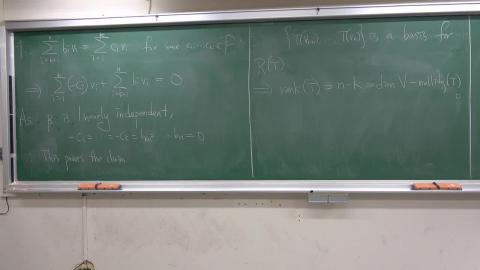 ∑_{i=k+1}^{n} b_i v_i = ∑_{i=1}^{k} c_i v_i for some c_1 … c_k ∈ F
⇒ ∑_{i=1}^{k} (-c_i) v_i + ∑_{i=k+1}^{n} b_i v_i = 0
As β is linearly independent,
-c_1 = … = -c_k = b_{k+1} = … b_n = 0
This proves the claim
{T(v_{k+1}), … T(v_n)} is a basis for
R(T)
⇒ rank(T) = n-k = dim V - nullity(T)